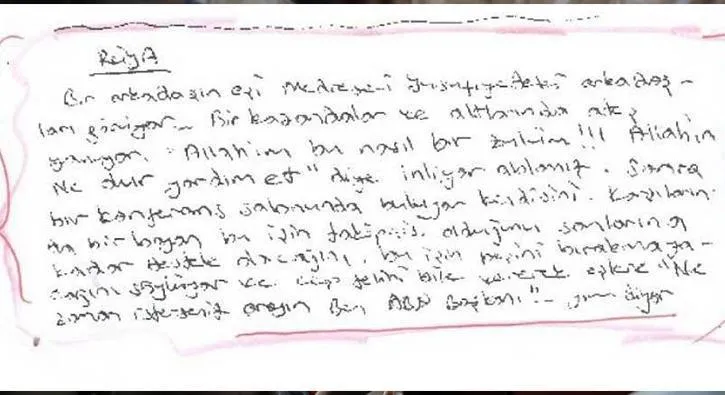 RüyA
Bir arkadaşın eşi Medrese-i Yusufiyedeki arkadaş-
ları görüyor... Bir kazandalar ve altlarında ateş
yanıyor. "Allah'ım bu nasıl bir zulüm!!! Allah'ım
Ne olur yardım et" diye inliyor ablamız. Sonra
bir konferans salonunda buluyor kendisini. Karşıların-
da bir bayan bu işin takipçisi olduğunu sonlarına
kadar destek olacağını, bu işin peşini bırakmaya-
cağını söylüyor ve cep telini bile vererek eşlere "Ne
zaman isterseniz arayın Ben ABD Başkanı" diyor